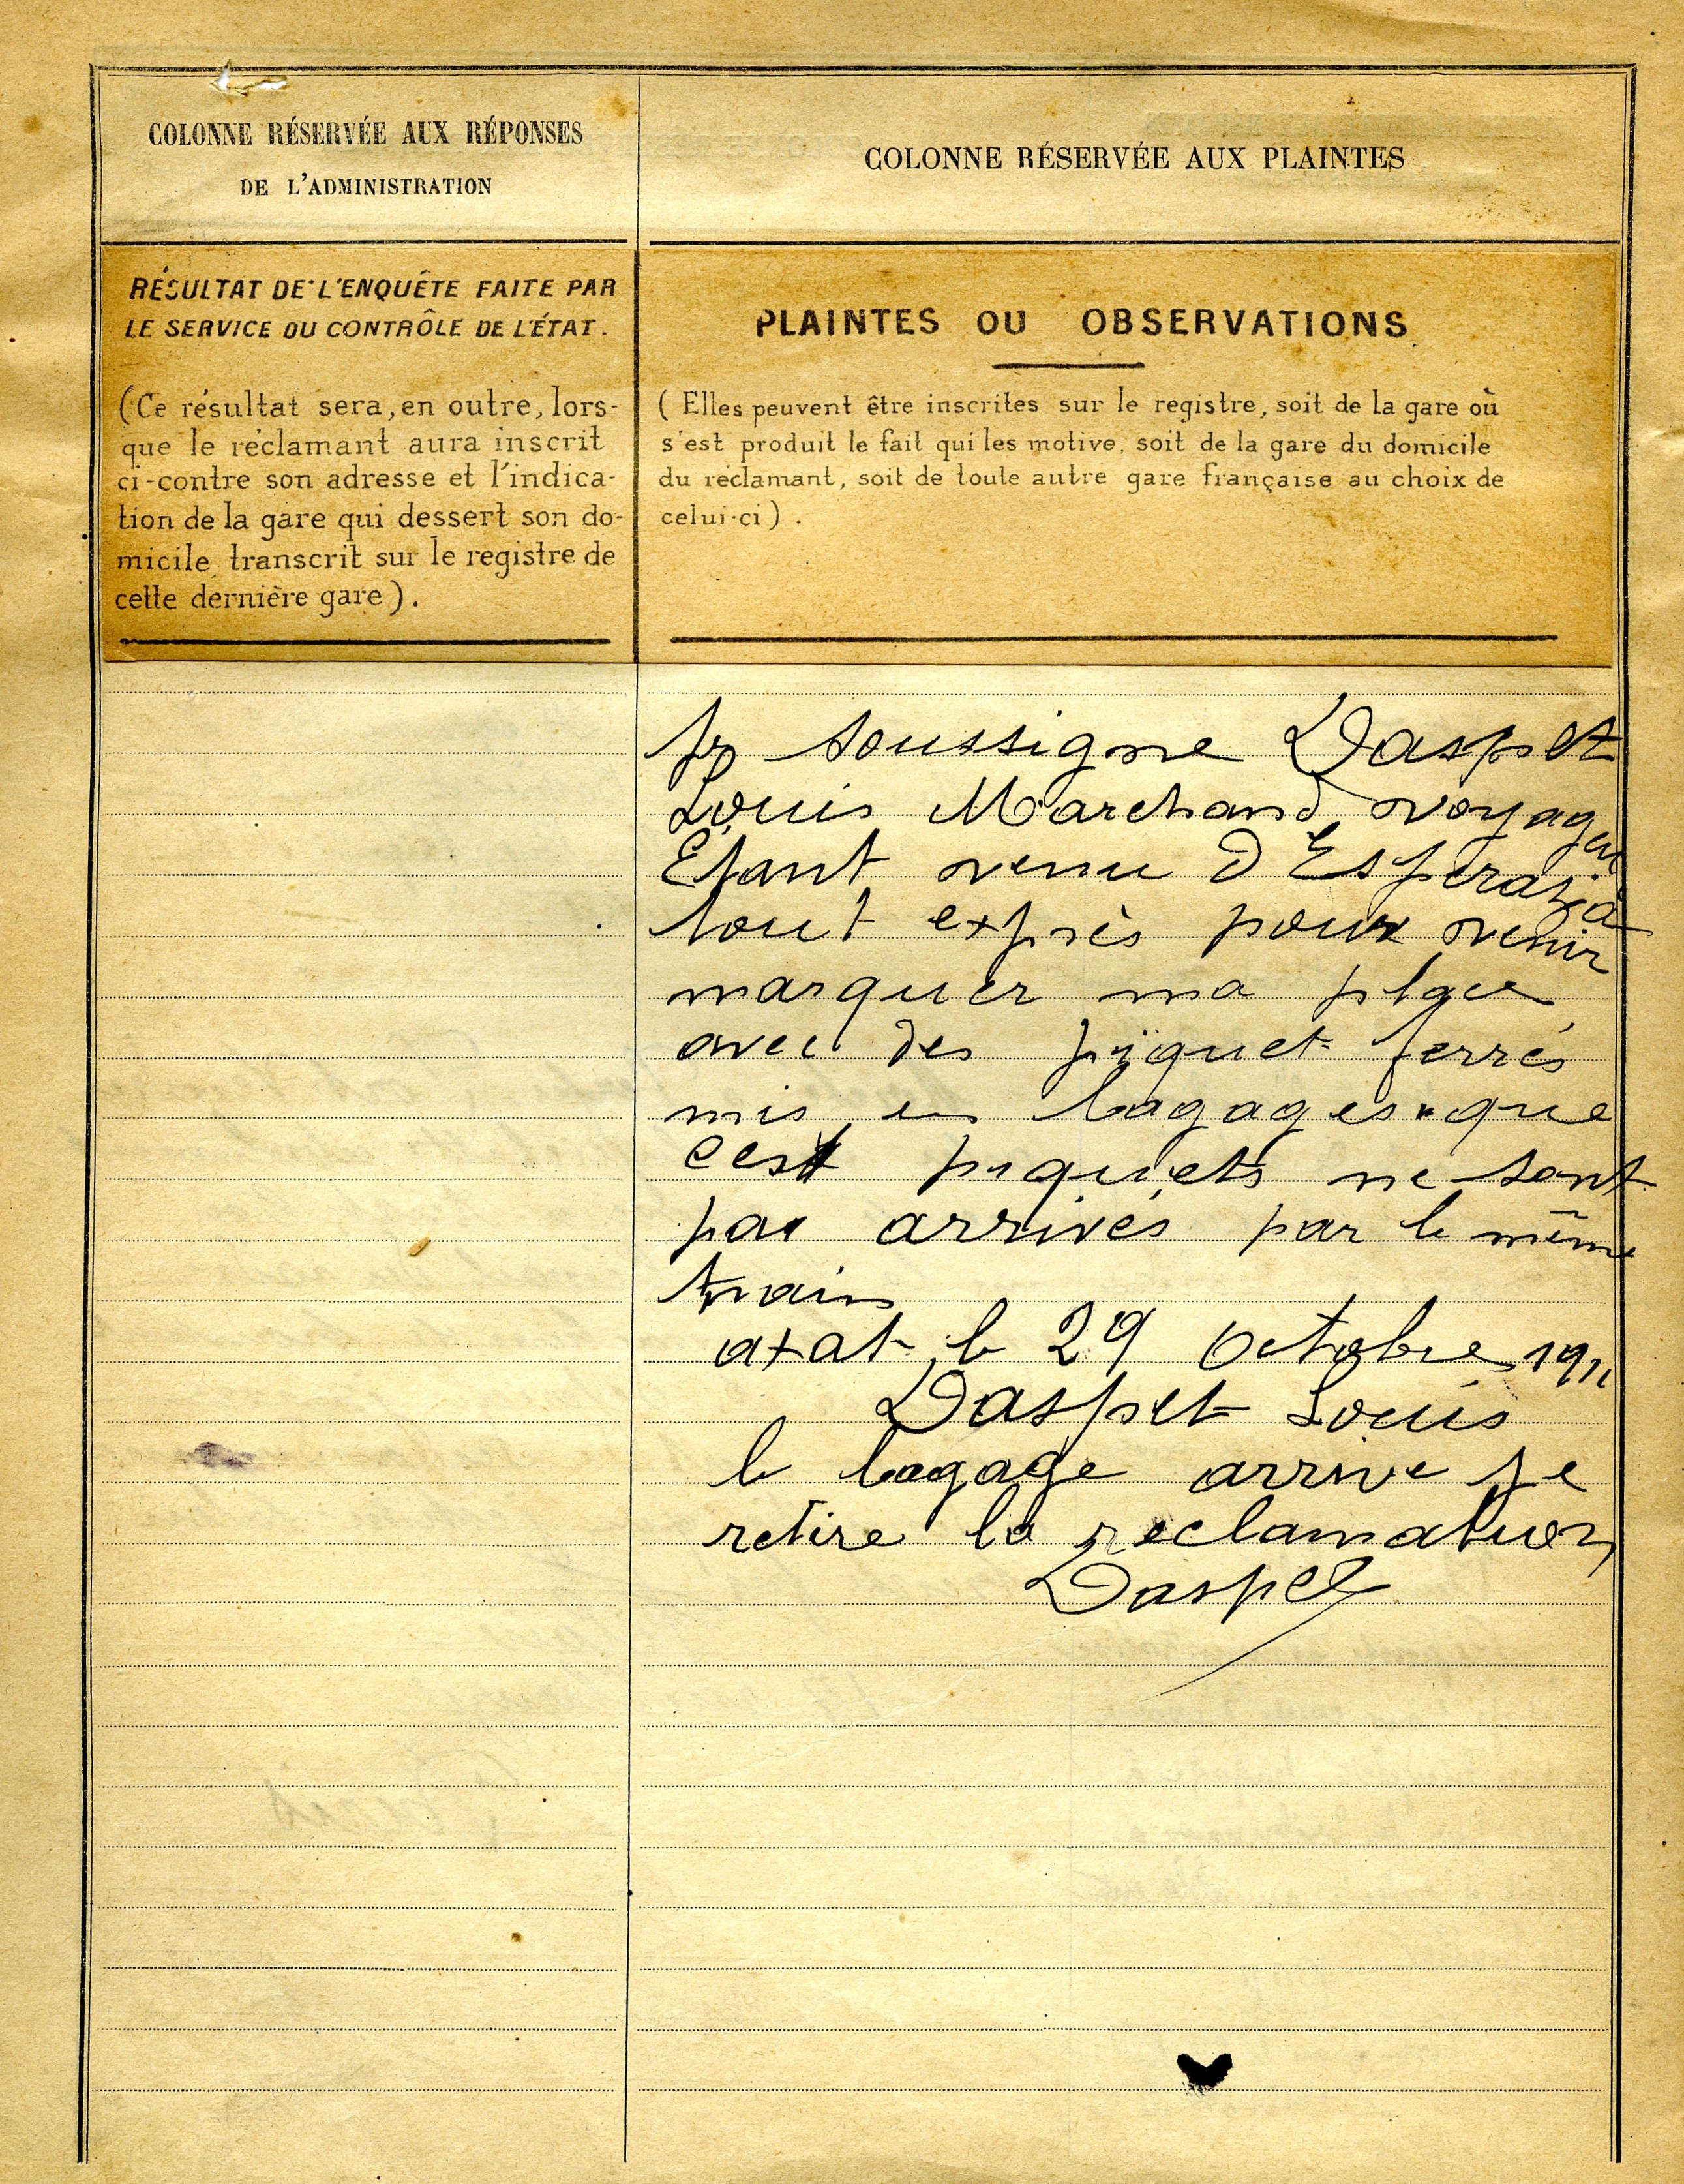 COLONNE RÉSERVÉE AUX RÉPONSES
DE L'ADMINISTRATION
COLONNE RÉSERVÉE AUX PLAINTES
RÉSULTAT DE L'ENQUÊTE FAITE PAR
LE SERVICE DU CONTRÔLE DE L'ÉTAT.
(Ce résultat sera, en outre, lors-
que le réclamant aura inscrit
ci-contre son adresse et l'indica-
tion de la gare qui dessert son do-
micile transcrit sur le registre de
cette dernière gare).
PLAINTES OU OBSERVATIONS
(Elles peuvent être inscrites sur le registre, soit de la gare où
s'est produit le fait qui les motive, soit de la gare du domicile
du réclamant, soit de toute autre gare française au choix de
celui-ci).
Je soussigne Daspet
Louis Marchand voyageur
Etant venu d'Esperaza
tout exprès pour venir
marquer ma place
avec des piquet ferrés
mis en bagages que
ces piquets ne sont
pas arrivés par le même
train
axat le 29 Octobre 1911
Daspet Louis
le bagage arrive je
retire la reclamation
Daspet